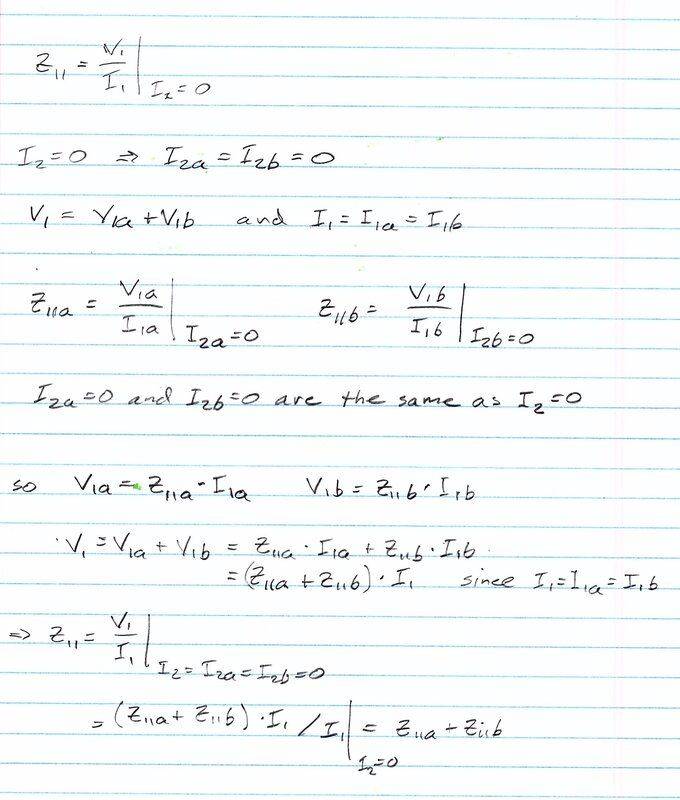 Z11 = V1/I1 | I2=0
I2=0 ⇒ I2a = I2b = 0
V1 = V1a + V1b and I1 = I1a = I1b
Z11a = V1a/I1a | I2a=0 Z11b = V1b/I1b | I2b=0
I2a=0 and I2b=0 are the same as I2=0
so V1a = Z11a · I1a V1b = Z11b · I1b
V1 = V1a + V1b = Z11a · I1a + Z11b · I1b
= (Z11a + Z11b) · I1 since I1 = I1a = I1b
⇒ Z11 = V1/I1 | I2 = I2a = I2b = 0
= (Z11a + Z11b) · I1 / I1 | I2=0 = Z11a + Z11b